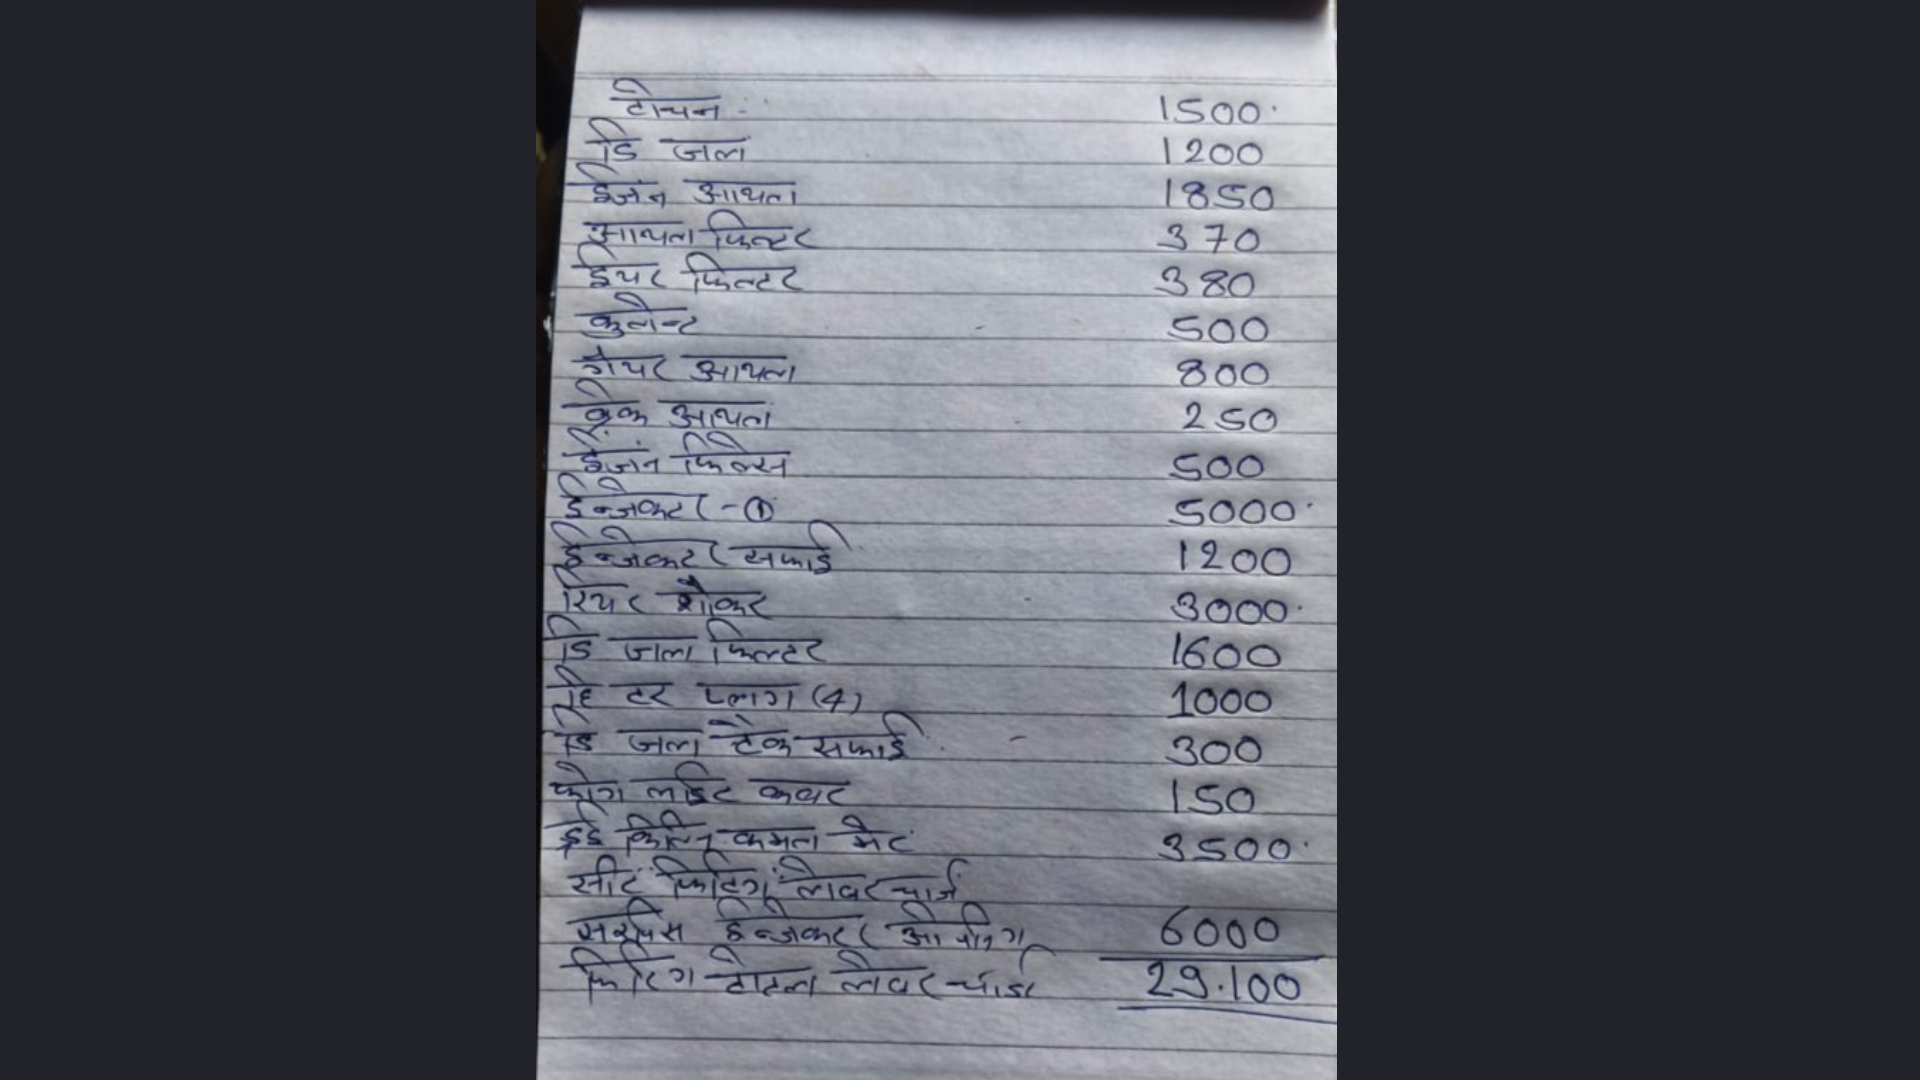 टोचन - 1500
डिजल 1200
ईजंन आयल 1850
आयल फिल्टर 370
ईयर फिल्टर 380
कुलेन्ट 500
गेयर आयल 800
ब्रेक आयल 250
ईंजंन 500
ईन्जेकटर - ① 5000
ईन्जेकटर सफाई 1200
रियर शौकर 3000
डि जल फिल्टर 1600
हि टर प्लाग (4) 1000
डि जल टैंक सफाई 300
फोग लाईट कवर 150
कमल मेट 3500
सीट फिटिंग लेवर चार्ज
सरविस ईन्जेकटर ओपनिग 6000
फिटिग टोटल लेवर चार्ज 29.100